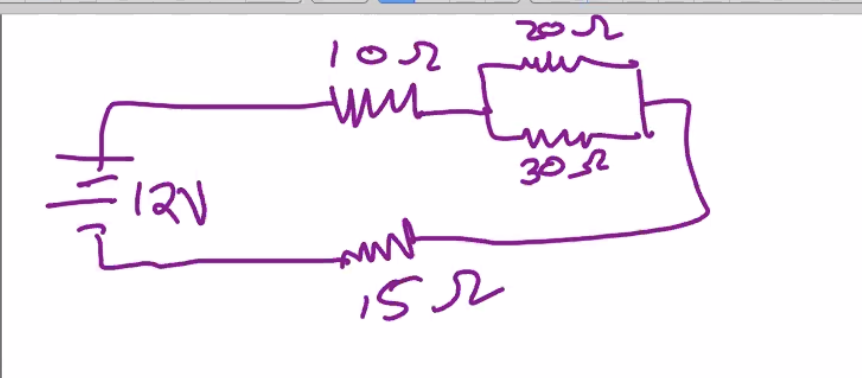 20Ω
10Ω
30Ω
12V
15Ω